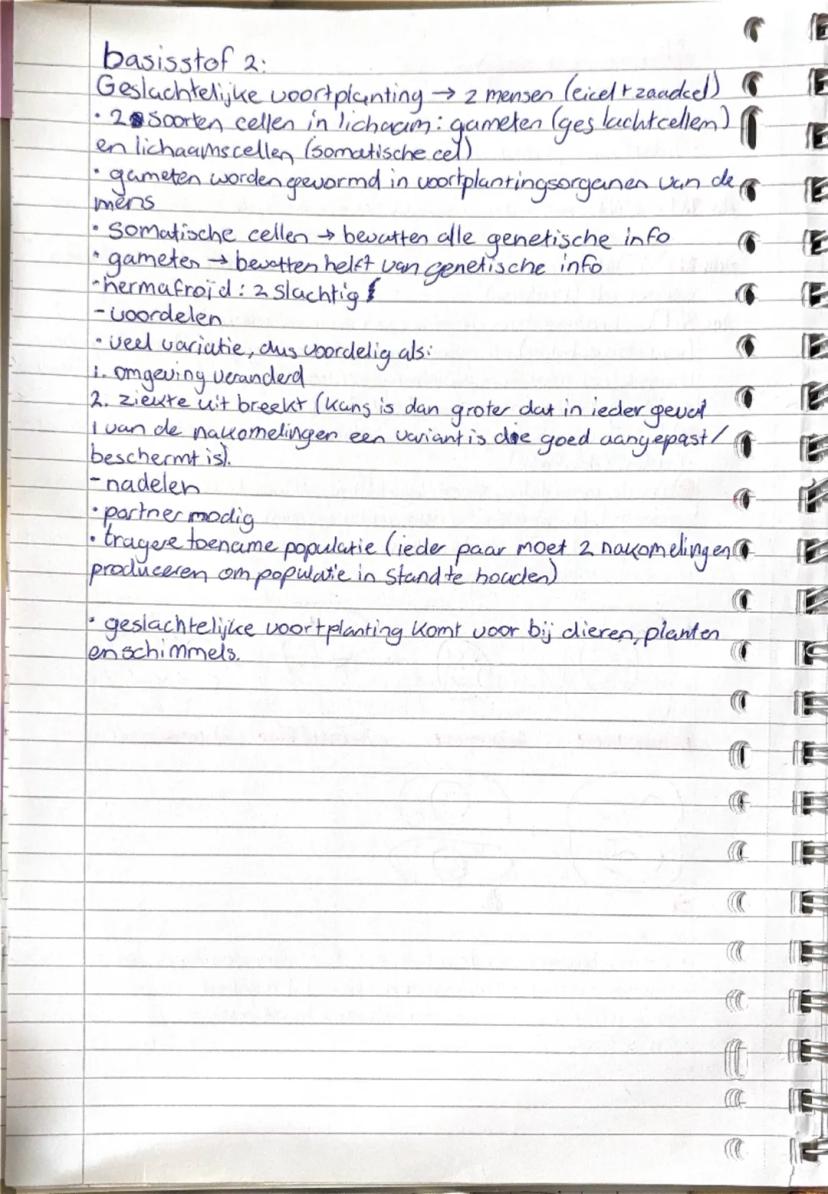 basisstof 2:
Geslachtelijke voortplanting → 2 mensen (eicel + zaadcel)
• 2 soorten cellen in lichaam: gameten (geslachtcellen)
en lichaamscellen (somatische cel)
• gameten worden gevormd in voortplantingsorganen van de
mens
• Somatische cellen → bevatten alle genetische info
• gameten → bevatten helft van genetische info
-hermafroïd: 2 slachtig
- voordelen
• veel variatie, dus voordelig als:
1. omgeving veranderd
2. ziekte uitbreekt (kans is dan groter dat in ieder geval
1 van de nakomelingen een variant is die goed aangepast/
beschermt is).
- nadelen
• partner nodig
• tragere toename populatie (ieder paar moet 2 nakomelingen
produceren om populatie in stand te houden)
• geslachtelijke voortplanting komt voor bij dieren, planten
en schimmels.